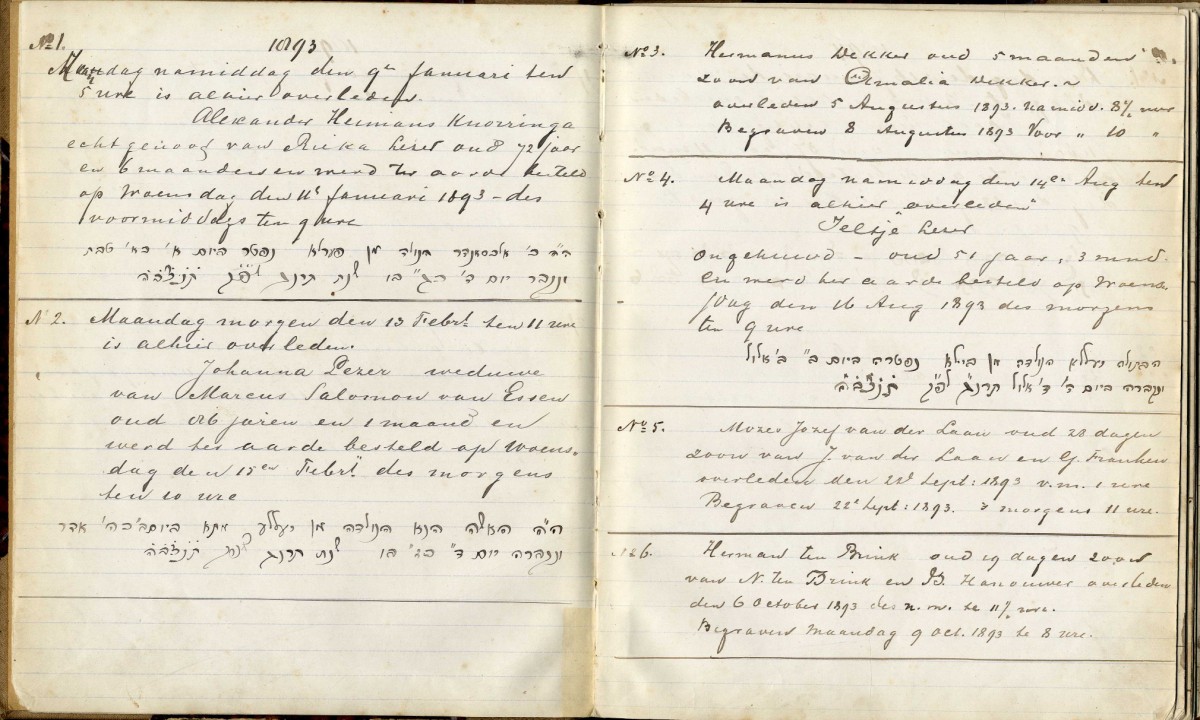 No 1. 1893
Maandag namiddag den 9e Januari ten
5 ure is alhier overleden.
Alexander Heimans Knorringa
echtgenoot van Rieka Lezer oud 72 jaar
en 6 maanden en werd ter aarde besteld
op Woensdag den 11e Januari 1893 - des
voormiddags ten 9 ure
ה"ה כ' אלכסאנדר הנולד מן פערלא נפטר ביום א' כא' טבת
ונקבר יום ד' בו שנת תרנג לפ"ק תנצבה
No 2. Maandag morgen den 13 Febr. ten 11 ure
is alhier overleden.
Johanna Lezer weduwe
van Marcus Salomon van Essen
oud 86 jaren en 1 maand en
werd ter aarde besteld op Woens-
dag den 15en Febr. des morgens
ten 10 ure
האשה הנולדה מן אדר
ונקברה יום ד' בו שנת תרנג תנצבה
No 3. Hermanus Dekker oud 5 maanden
zoon van Amalia Dekker
overleden 5 Augustus 1893. namidd. 8½ uur
Begraven 8 Augustus 1893 Voor " 10 "
No 4. Maandag namiddag den 14en Aug ten
4 ure is alhier overleden
Jeltje Lezer
ongehuwd - oud 51 jaar, 3 mnd.
En werd ter aarde besteld op Woens-
dag den 16 Aug 1893 des morgens
ten 9 ure
הבתולה יעללא הנולדה מן ביילא נפטרה ביום ב' ב' אלול
ונקברה ביום ד' ד' אלול תרנג לפ"ק תנצבה
No 5. Mozes Jozef van der Laan oud 28 dagen
zoon van J. van der Laan en G. Franken
overleden den 22e Sept: 1893 v.m. 1 ure
Begraven 22e Sept: 1893. 's morgens 11 ure.
No 6. Herman ten Brink oud 19 dagen zoon
van N. ten Brink en B. Hanouwer overleden
den 6 October 1893 des n.m. te 11½ ure.
Begraven Maandag 9 Oct. 1893 te 8 ure.